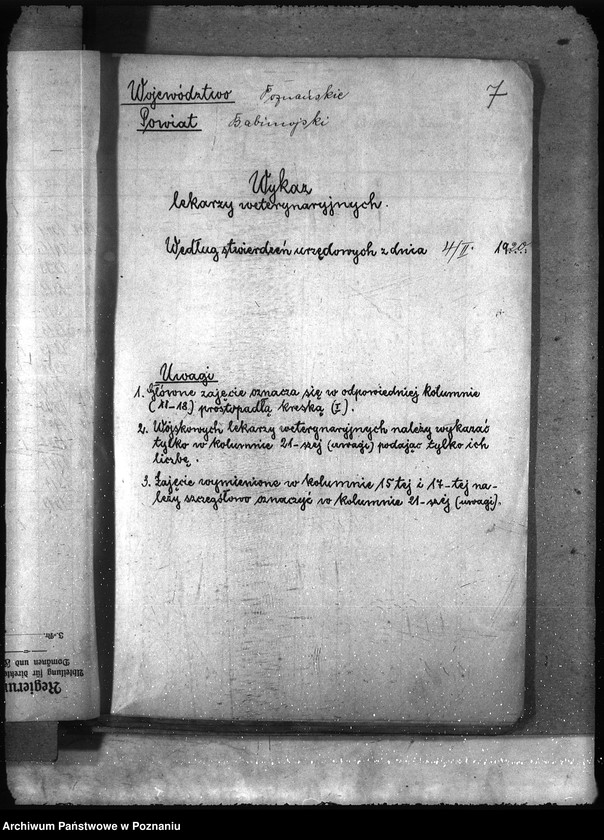 Województwo Poznańskie 7
Powiat Babimojski
Wykaz
lekarzy weterynaryjnych.
Według stwierdzeń urzędowych z dnia 4/II. 1920.
Uwagi
1. Główne zajęcie oznacza się w odpowiedniej kolumnie
(11-18.) prostopadłą kreską (I).
2. Wojskowych lekarzy weterynaryjnych należy wykazać
tylko w kolumnie 21-szej (uwagi) podając tylko ich
liczbę.
3. Zajęcie wymienione w kolumnie 15 tej i 17-tej na-
leży szczegółowo oznaczyć w kolumnie 21-szej (uwagi).
J.-Nr.
Domänen und
Abteilung für direkte
Regierun
Archiwum Państwowe w Poznaniu